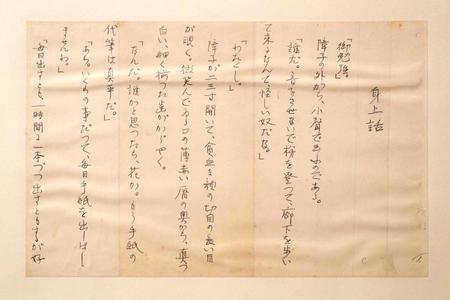 身上話
「御勉強」
障子の外から、小聲で云ふのである。
「誰だ。音をさせないで梯を登つて、廊下を歩い
て来るなんて、怪しい奴だな。」
「わたくし。」
障子が二三寸開いて、貧血な顔の切目の長い目
が覗く。微笑んでゐる口の薄赤い唇の奥から、真つ
白い、細く揃つた歯がかがやく。
「なんだ。誰かと思つたら、花か。もう手紙の
代筆は真平だ。」
「あら。いくらの事だつて、毎日手紙を出しはし
ませんわ。」
「毎日出すとも、一時間に一本づつ出すともするが好